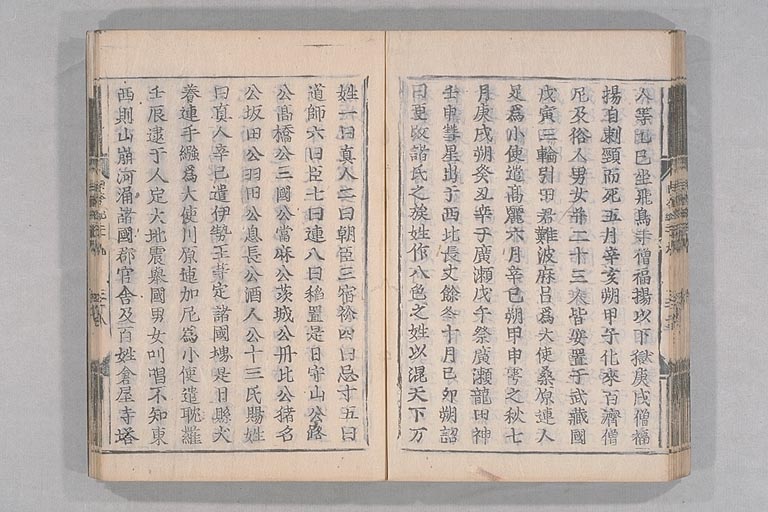 人等也己巳坐飛鳥寺僧福揚以下獄庚戌僧福
揚自刺頸而死五月辛亥朔甲子化來百濟僧
尼及俗人男女并二十三人皆安置于武藏國
戊寅三輪引田君難波麻呂為大使桑原連人
足為小使遣高麗六月辛巳朔甲申雩之秋七
月庚戌朔癸丑幸于廣瀬戊午祭廣瀬龍田神
壬申彗星出于西北長丈餘冬十月己卯朔詔
曰更改諸氏之族姓作八色之姓以混天下万
姓一曰真人二曰朝臣三宿祢四曰忌寸五曰
道師六曰臣七曰連八曰稲置是日守山公路
公高橋公三國公當麻公茨城公丹比公猪名
公坂田公羽田公息長公酒人公十三氏賜姓
曰真人辛巳遣伊勢王等定諸國堺是日縣犬
養連手繦為大使川原連加尼為小使遣耽羅
壬辰逮于人定大地震舉國男女叫唱不知東
西則山崩河涌諸國郡官舎及百姓倉屋寺塔